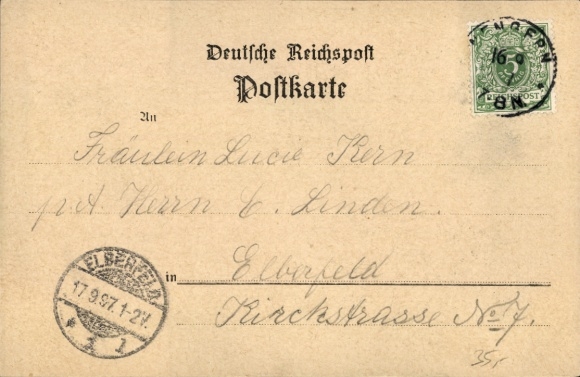 Deutsche Reichspost
Postkarte
An
Fräulein Lucie Kern
p. A. Herrn C. Linden.
in Elberfeld
Kirckstrasse No 7.
ELBERFELD
17.9.97.1-2V.
* 1 1
16 9
7-8N.
5
REICHSPOST
35,-